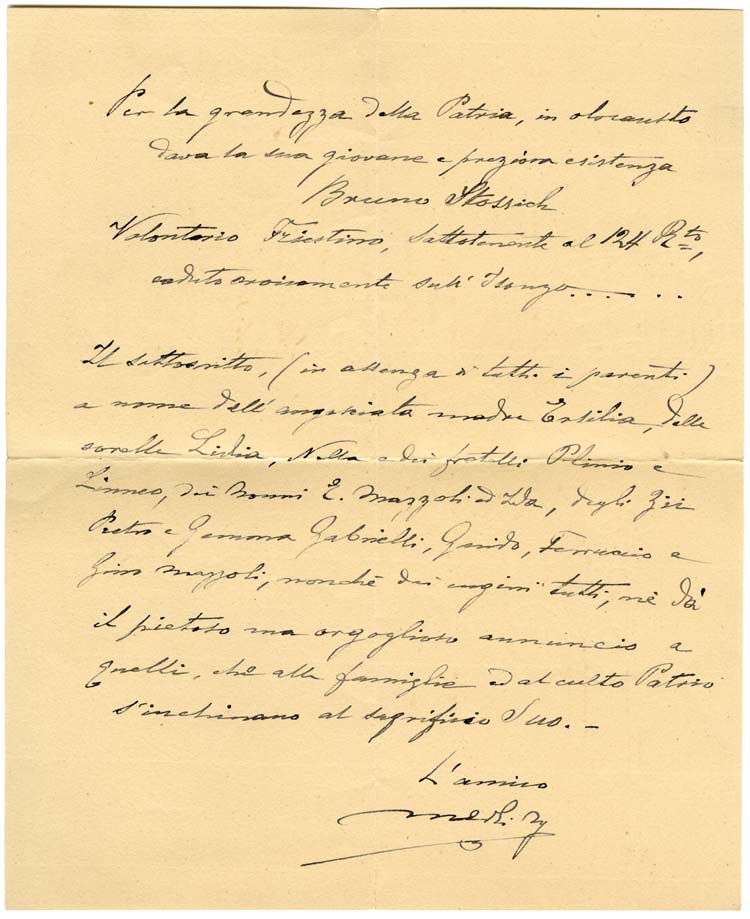 Per la grandezza della Patria, in olocausto
dava la sua giovane e preziosa esistenza
Bruno Stossich
Volontario Triestino, sottotenente al 124 R.to,
caduto eroicamente sull' Isonzo......
Il sottoscritto, (in assenza di tutti i parenti)
a nome dell' angosciata madre Ersilia, delle
sorelle Lidia, Nella e dei fratelli Plinio e
Linneo, dei nonni E. Mazzoli ed Ida, degli Zii
Pietro e Gemma Gabrielli, Guido, Ferruccio e
Gino Mazzoli, nonchè dei cugini tutti, nè dà
il pietoso ma orgoglioso annuncio a
quelli, che alla famiglie ed al culto Patrio
s'inchinano al sagrificio Suo. –
L'amico